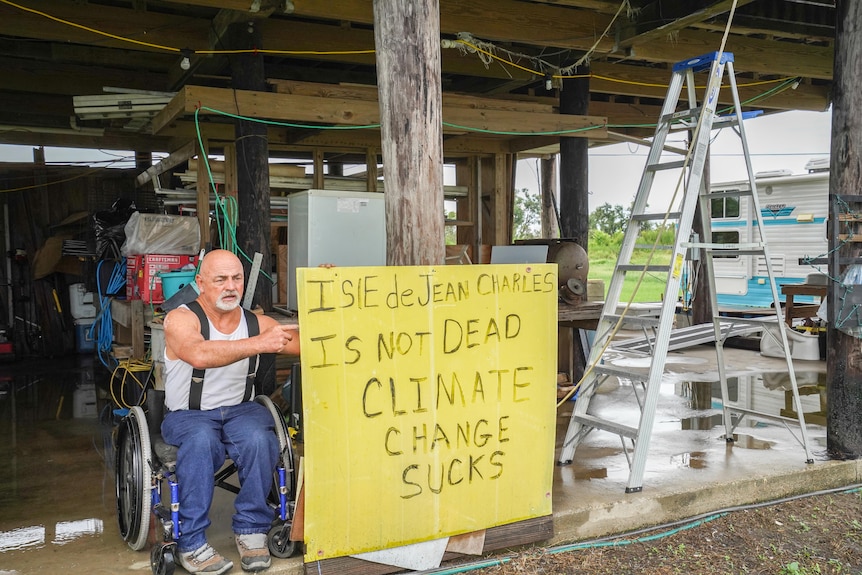 ISlE de JEAN CHARLES
IS NOT DEAD
CLIMATE
CHANGE
SUCKS
CRAFTSMAN